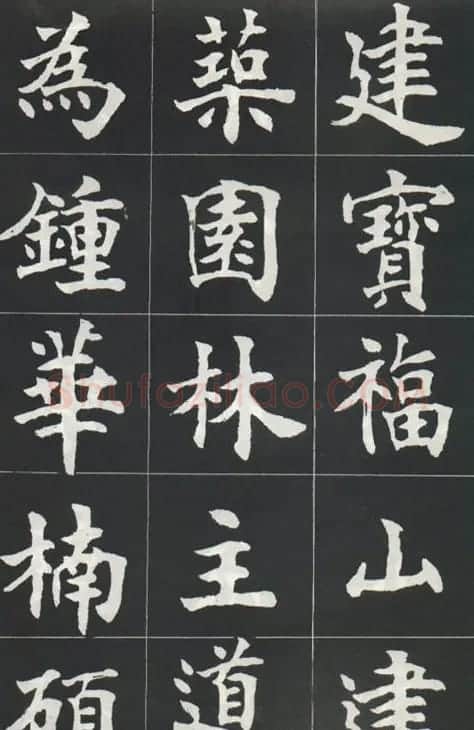 建寶福山建
築園林主道
為鍾華楠碩
Shufaziliao.com